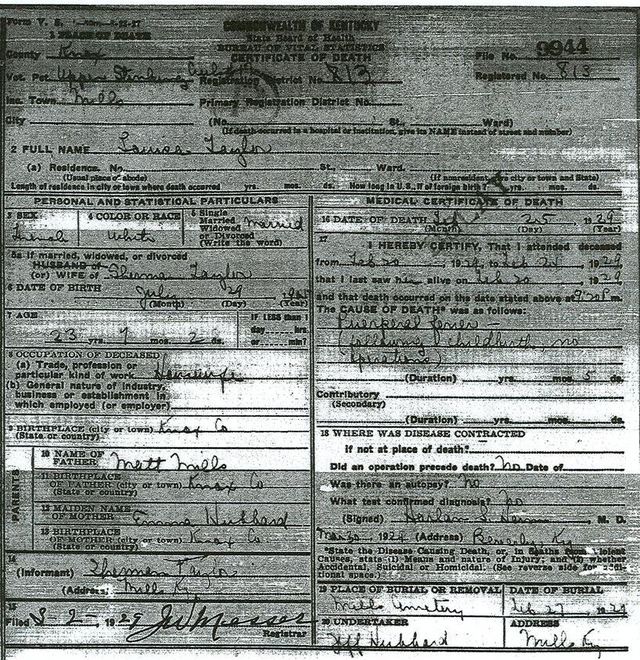 Form V. S.
COMMONWEALTH OF KENTUCKY
State Board of Health
BUREAU OF VITAL STATISTICS
CERTIFICATE OF DEATH
1 PLACE OF DEATH
County Knox
File No. 9944
Vot. Pct. Upper Stinking
Registration District No. 813
Registered No. 813
Inc. Town Mills
Primary Registration District No.
City
(No. St., Ward)
(If death occurred in a hospital or institution, give its NAME instead of street and number)
2 FULL NAME Louisa Taylor
(a) Residence. No. St., Ward.
(Usual place of abode) (If nonresident give city or town and State)
Length of residence in city or town where death occurred yrs. mos. ds. How long in U.S., if of foreign birth? yrs. mos. ds.
PERSONAL AND STATISTICAL PARTICULARS
3 SEX Female
4 COLOR OR RACE White
5 Single Married Widowed or Divorced (Write the word) Married
5a If married, widowed, or divorced
HUSBAND of
(or) WIFE of Taylor
6 DATE OF BIRTH 29
(Month) (Day) (Year)
7 AGE
23 yrs. mos. ds.
If LESS than 1 day hrs. or min?
8 OCCUPATION OF DECEASED
(a) Trade, profession or particular kind of work Housewife
(b) General nature of industry, business or establishment in which employed (or employer)
9 BIRTHPLACE (city or town) Knox Co
(State or country)
PARENTS
10 NAME OF FATHER Matt Mills
11 BIRTHPLACE OF FATHER (city or town) Knox Co
(State or country)
12 MAIDEN NAME OF MOTHER Emma Hubbard
13 BIRTHPLACE OF MOTHER (city or town) Knox Co
(State or country)
14
(Informant) Taylor
(Address) Mills Ky
15
Filed 2 1929 JW Messer
Registrar
MEDICAL CERTIFICATE OF DEATH
16 DATE OF DEATH 25 1929
(Month) (Day) (Year)
17
I HEREBY CERTIFY, That I attended deceased
from Feb 20 1929 to Feb 1929
that I last saw her alive on Feb 20 1929
and that death occurred on the date stated above at m.
The CAUSE OF DEATH* was as follows:
Puerperal fever
(following childbirth no
operations)
(Duration) yrs. mos. 5 ds.
Contributory
(Secondary)
(Duration) yrs. mos. ds.
18 WHERE WAS DISEASE CONTRACTED
if not at place of death?
Did an operation precede death? No Date of
Was there an autopsy? No
What test confirmed diagnosis? No
(Signed) Harlan M. D.
1929 (Address) Beverly Ky
*State the Disease Causing Death, or, in Deaths from Violent
Causes, state (1) Means and nature of Injury; and (2) whether
Accidental, Suicidal or Homicidal. (See reverse side for additional space.)
19 PLACE OF BURIAL OR REMOVAL Mills Cemetery
DATE OF BURIAL Feb 27 1929
20 UNDERTAKER Jeff Hubbard
ADDRESS Mills Ky